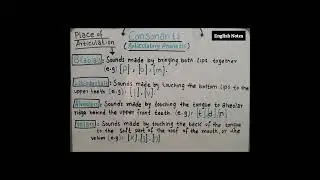 English Notes
Place of Articulation
Consonants
(Articulatory Phonetics)
Bilabial: Sounds made by bringing both lips together
(e.g): [p], [b], [m].
Labiodental: Sounds made by touching the bottom lips to the
upper teeth (e.g): [f], [v].
Alveolar: Sounds made by touching the tongue to alveolar
ridge behind the upper front teeth (e.g): [t], [d], [n]
Velar: Sounds made by touching the back of the tongue
to the soft part of the roof of the mouth, or the
velum (e.g): [k],